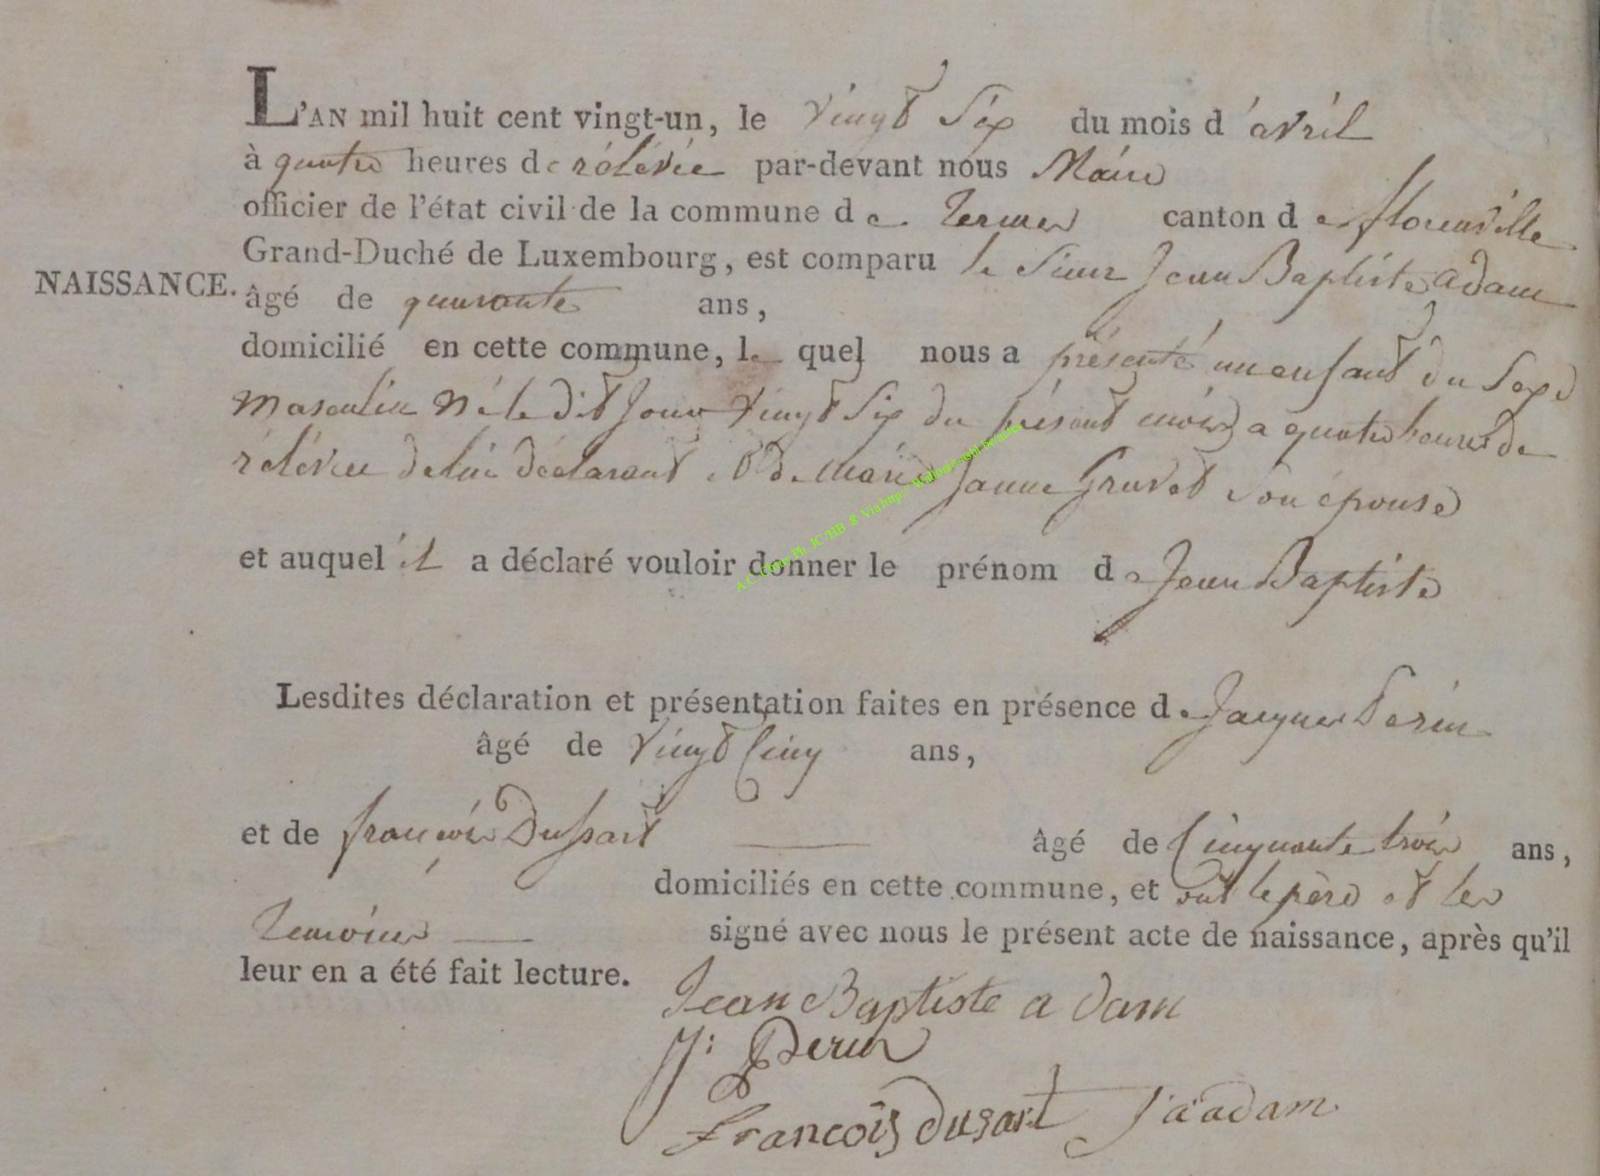 L'AN mil huit cent vingt-un, le vingt Six du mois d'avril
à quatre heures de rélévée par-devant nous Maire
officier de l'état civil de la commune de termes canton de florenville
Grand-Duché de Luxembourg, est comparu le Sieur Jean Baptiste adam
NAISSANCE.
âgé de quarante ans,
domicilié en cette commune, lequel nous a présenté un enfant du Sexe
masculin né le dit Jour vingt Six du présent mois a quatre heures de
rélévée de lui déclarant et de marie Janne Gruvet Son épouse
et auquel il a déclaré vouloir donner le prénom de Jean Baptiste
Lesdites déclaration et présentation faites en présence de Jacques Perin
âgé de vingt Cinq ans,
et de françois Dussart âgé de Cinquante trois ans,
domiciliés en cette commune, et ont le père et les
temoins signé avec nous le présent acte de naissance, après qu'il
leur en a été fait lecture.
Jean Baptiste adam
J: Perin
François dusart J a adam